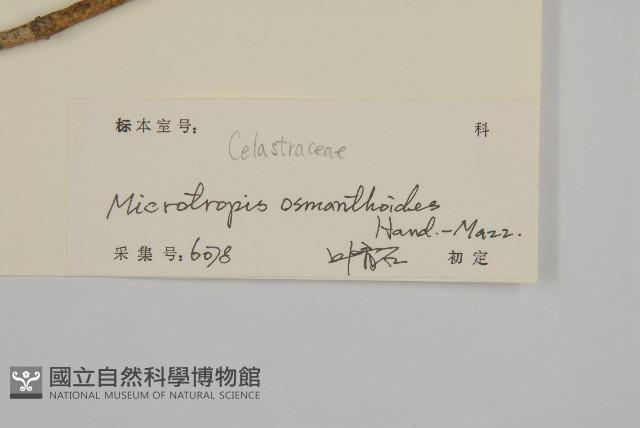 标本室号: 科
Celastraceae
Microtropis osmanthoides
Hand.-Mazz.
采集号: 6078 初定
國立自然科學博物館
NATIONAL MUSEUM OF NATURAL SCIENCE